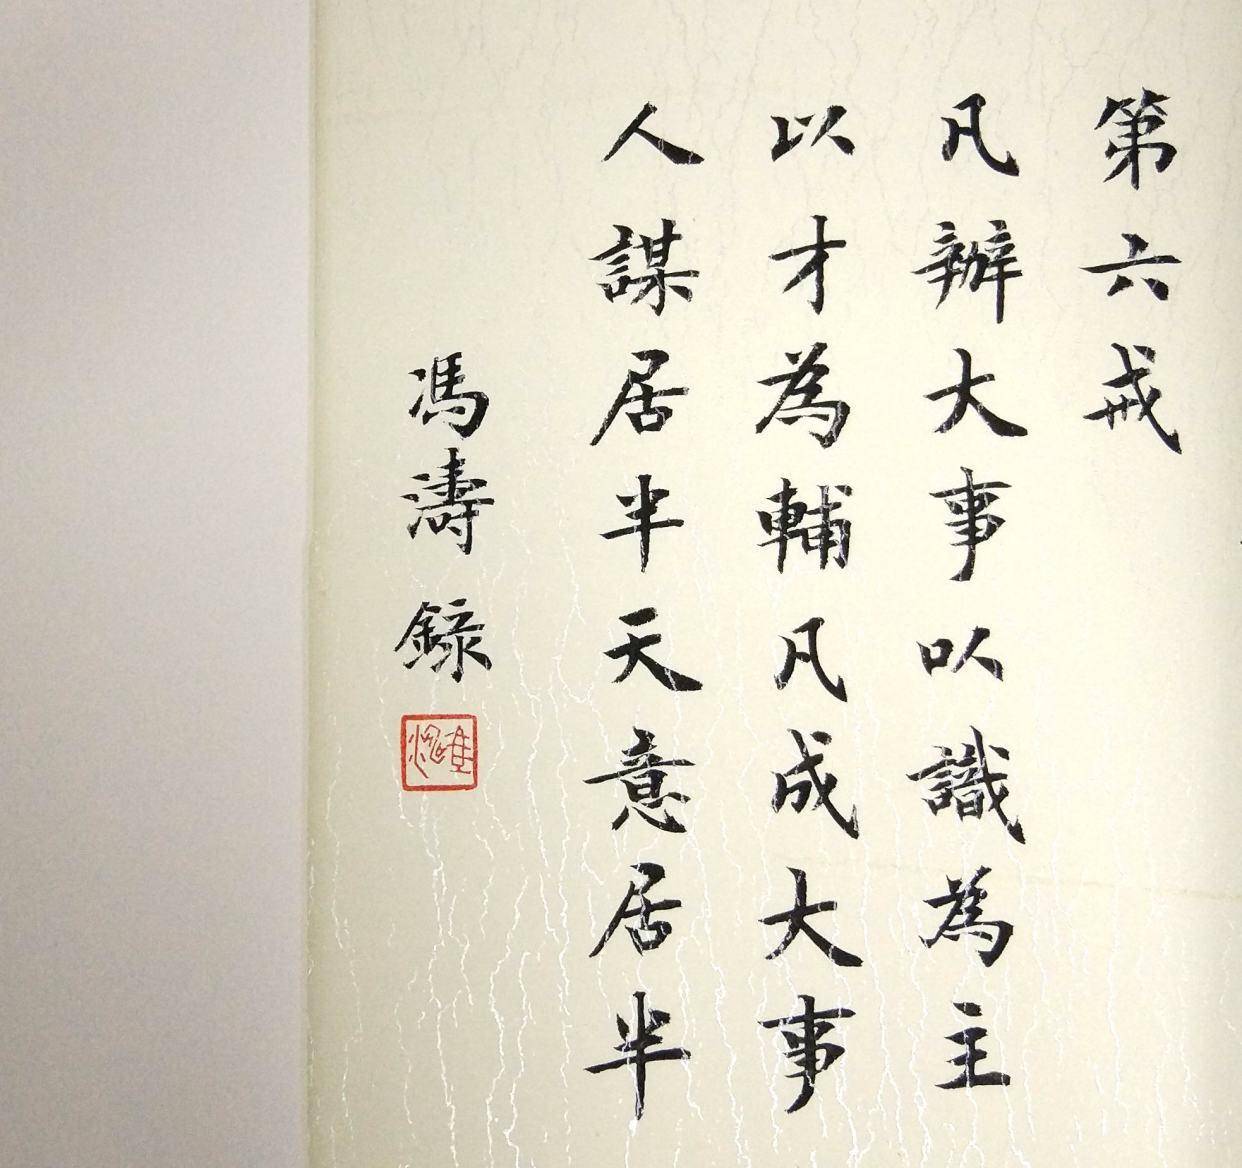 第六戒
凡辦大事以識為主
以才為輔凡成大事
人謀居半天意居半
馮濤錄